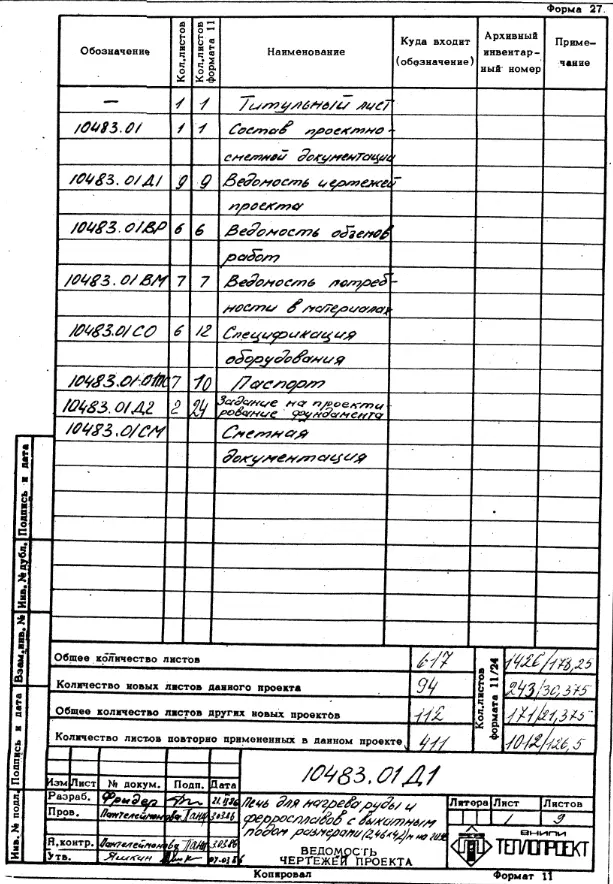 Форма 27.
Обозначение Кол.листов Кол.листов формата 11 Наименование Куда входит (обозначение) Архивный инвентарный номер Приме-чание
— 1 1 Титульный лист
10483.01 1 1 Состав проектно-
сметной документации
10483.01Д1 9 9 Ведомость чертежей
проекта
10483.01ВР 6 6 Ведомость объемов
работ
10483.01ВМ 7 7 Ведомость потреб-
ности в материалах
10483.01СО 6 12 Спецификация
оборудования
7 10 Паспорт
10483.01Д2 2 24 Задание на проекти
рование фундамента
10483.01СМ Сметная
документация
Общее количество листов 617 1426/178,25
Количество новых листов данного проекта 94 243/30,375
Общее количество листов других новых проектов 112 171/21,375
Количество листов повторно примененных в данном проекте 411 1012/126,5
Кол.листов формата 11/24
10483.01Д1
Изм Лист № докум. Подп. Дата
Разраб. Фридер
Пров. Пантелеймонова 3.03.86
Н.контр. Пантелеймонова 3.03.86
Утв. Яшкин 07.03.86
Печь для нагрева руды и
ферросплавов с выкатным
подом размерами
ВЕДОМОСТЬ
ЧЕРТЕЖЕЙ ПРОЕКТА
Литера Лист Листов
1 9
ВНИПИ
ТЕПЛОПРОЕКТ
Копировал Формат 11
Инв. № подл. Подпись и дата Взам.инв. № Инв. № дубл. Подпись и дата